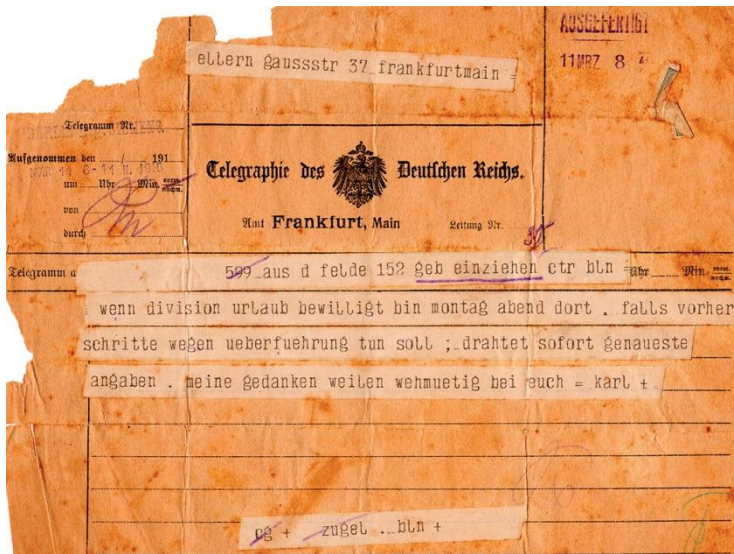 AUSGEFERTIGT
11 MRZ 8
ellern gaussstr 37 frankfurtmain =
Telegramm Nr.
Aufgenommen den / 191
um Uhr Min. vorm. nachm.
von
durch
Telegraphie des Deutschen Reichs.
Amt Frankfurt, Main Leitung Nr.
Telegramm a 599 aus d felde 152 geb einziehen ctr bln = Uhr Min. vorm. nachm.
= wenn division urlaub bewilligt bin montag abend dort . falls vorher
schritte wegen ueberfuehrung tun soll ; drahtet sofort genaueste
angaben . meine gedanken weilen wehmuetig bei euch = karl +
cg + zugel .. bln +